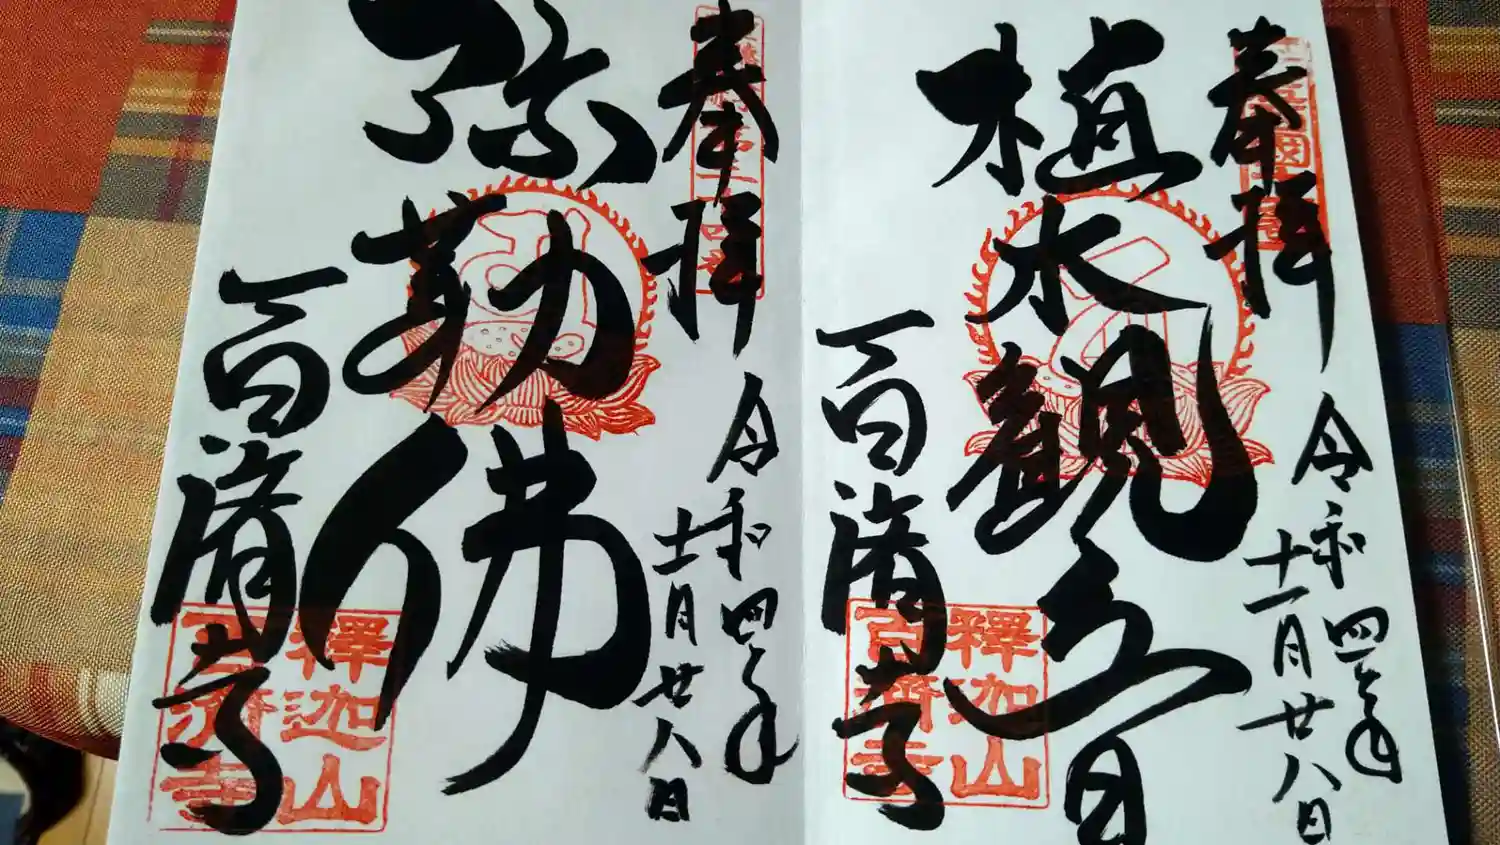 奉拝
令和四年
十一月廿八日
植木観音
百済寺
釋迦山
百濟寺
奉拝
令和四年
十一月廿八日
弥勒佛
百済寺
釋迦山
百濟寺